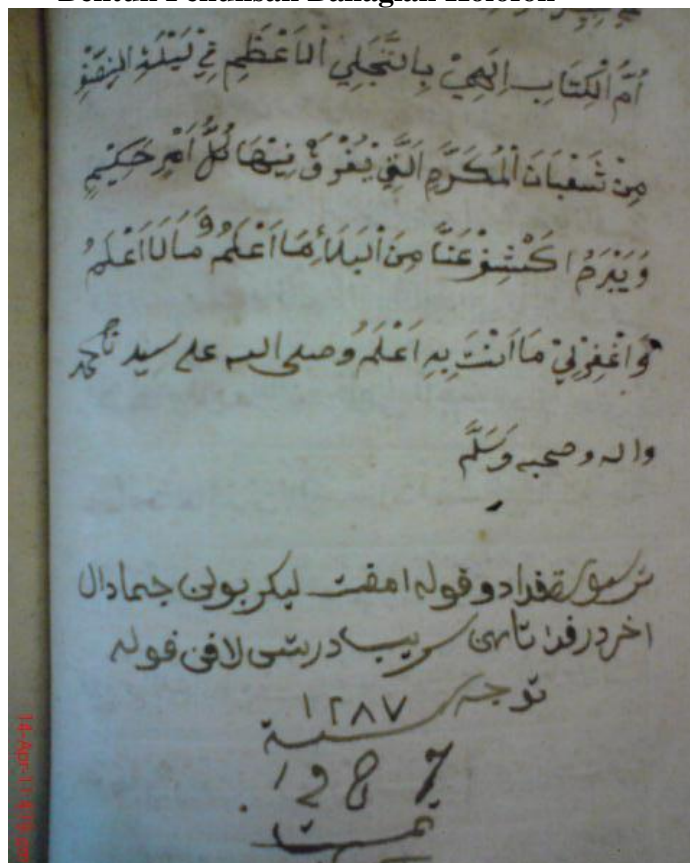 Bentuk Penulisan Bahagian Kolofon
اُمِّ الْكِتَابِ اِلٰهِيْ بِالتَّجَلِّي الْاَعْظَمِ فِيْ لَيْلَةِ النِّصْفِ
مِنْ شَعْبَانَ الْمُكَرَّمِ الَّتِيْ يُفْرَقُ فِيْهَا كُلُّ اَمْرٍ حَكِيْمٍ
وَيُبْرَمُ اكْشِفْ عَنَّا مِنَ الْبَلَاءِ مَا اَعْلَمُ وَمَا لَا اَعْلَمُ
وَاغْفِرْ لِيْ مَا اَنْتَ بِهِ اَعْلَمُ وصلى الله على سيدنا محمد
واله وصحبه وَسَلَّم
فد دوفوله امفت ليكر بولن جمادال
اخر درفد تاهن سريب دراتس لافن فوله
توجه
سنة ١٢٨٧
تمت
14-Apr-11